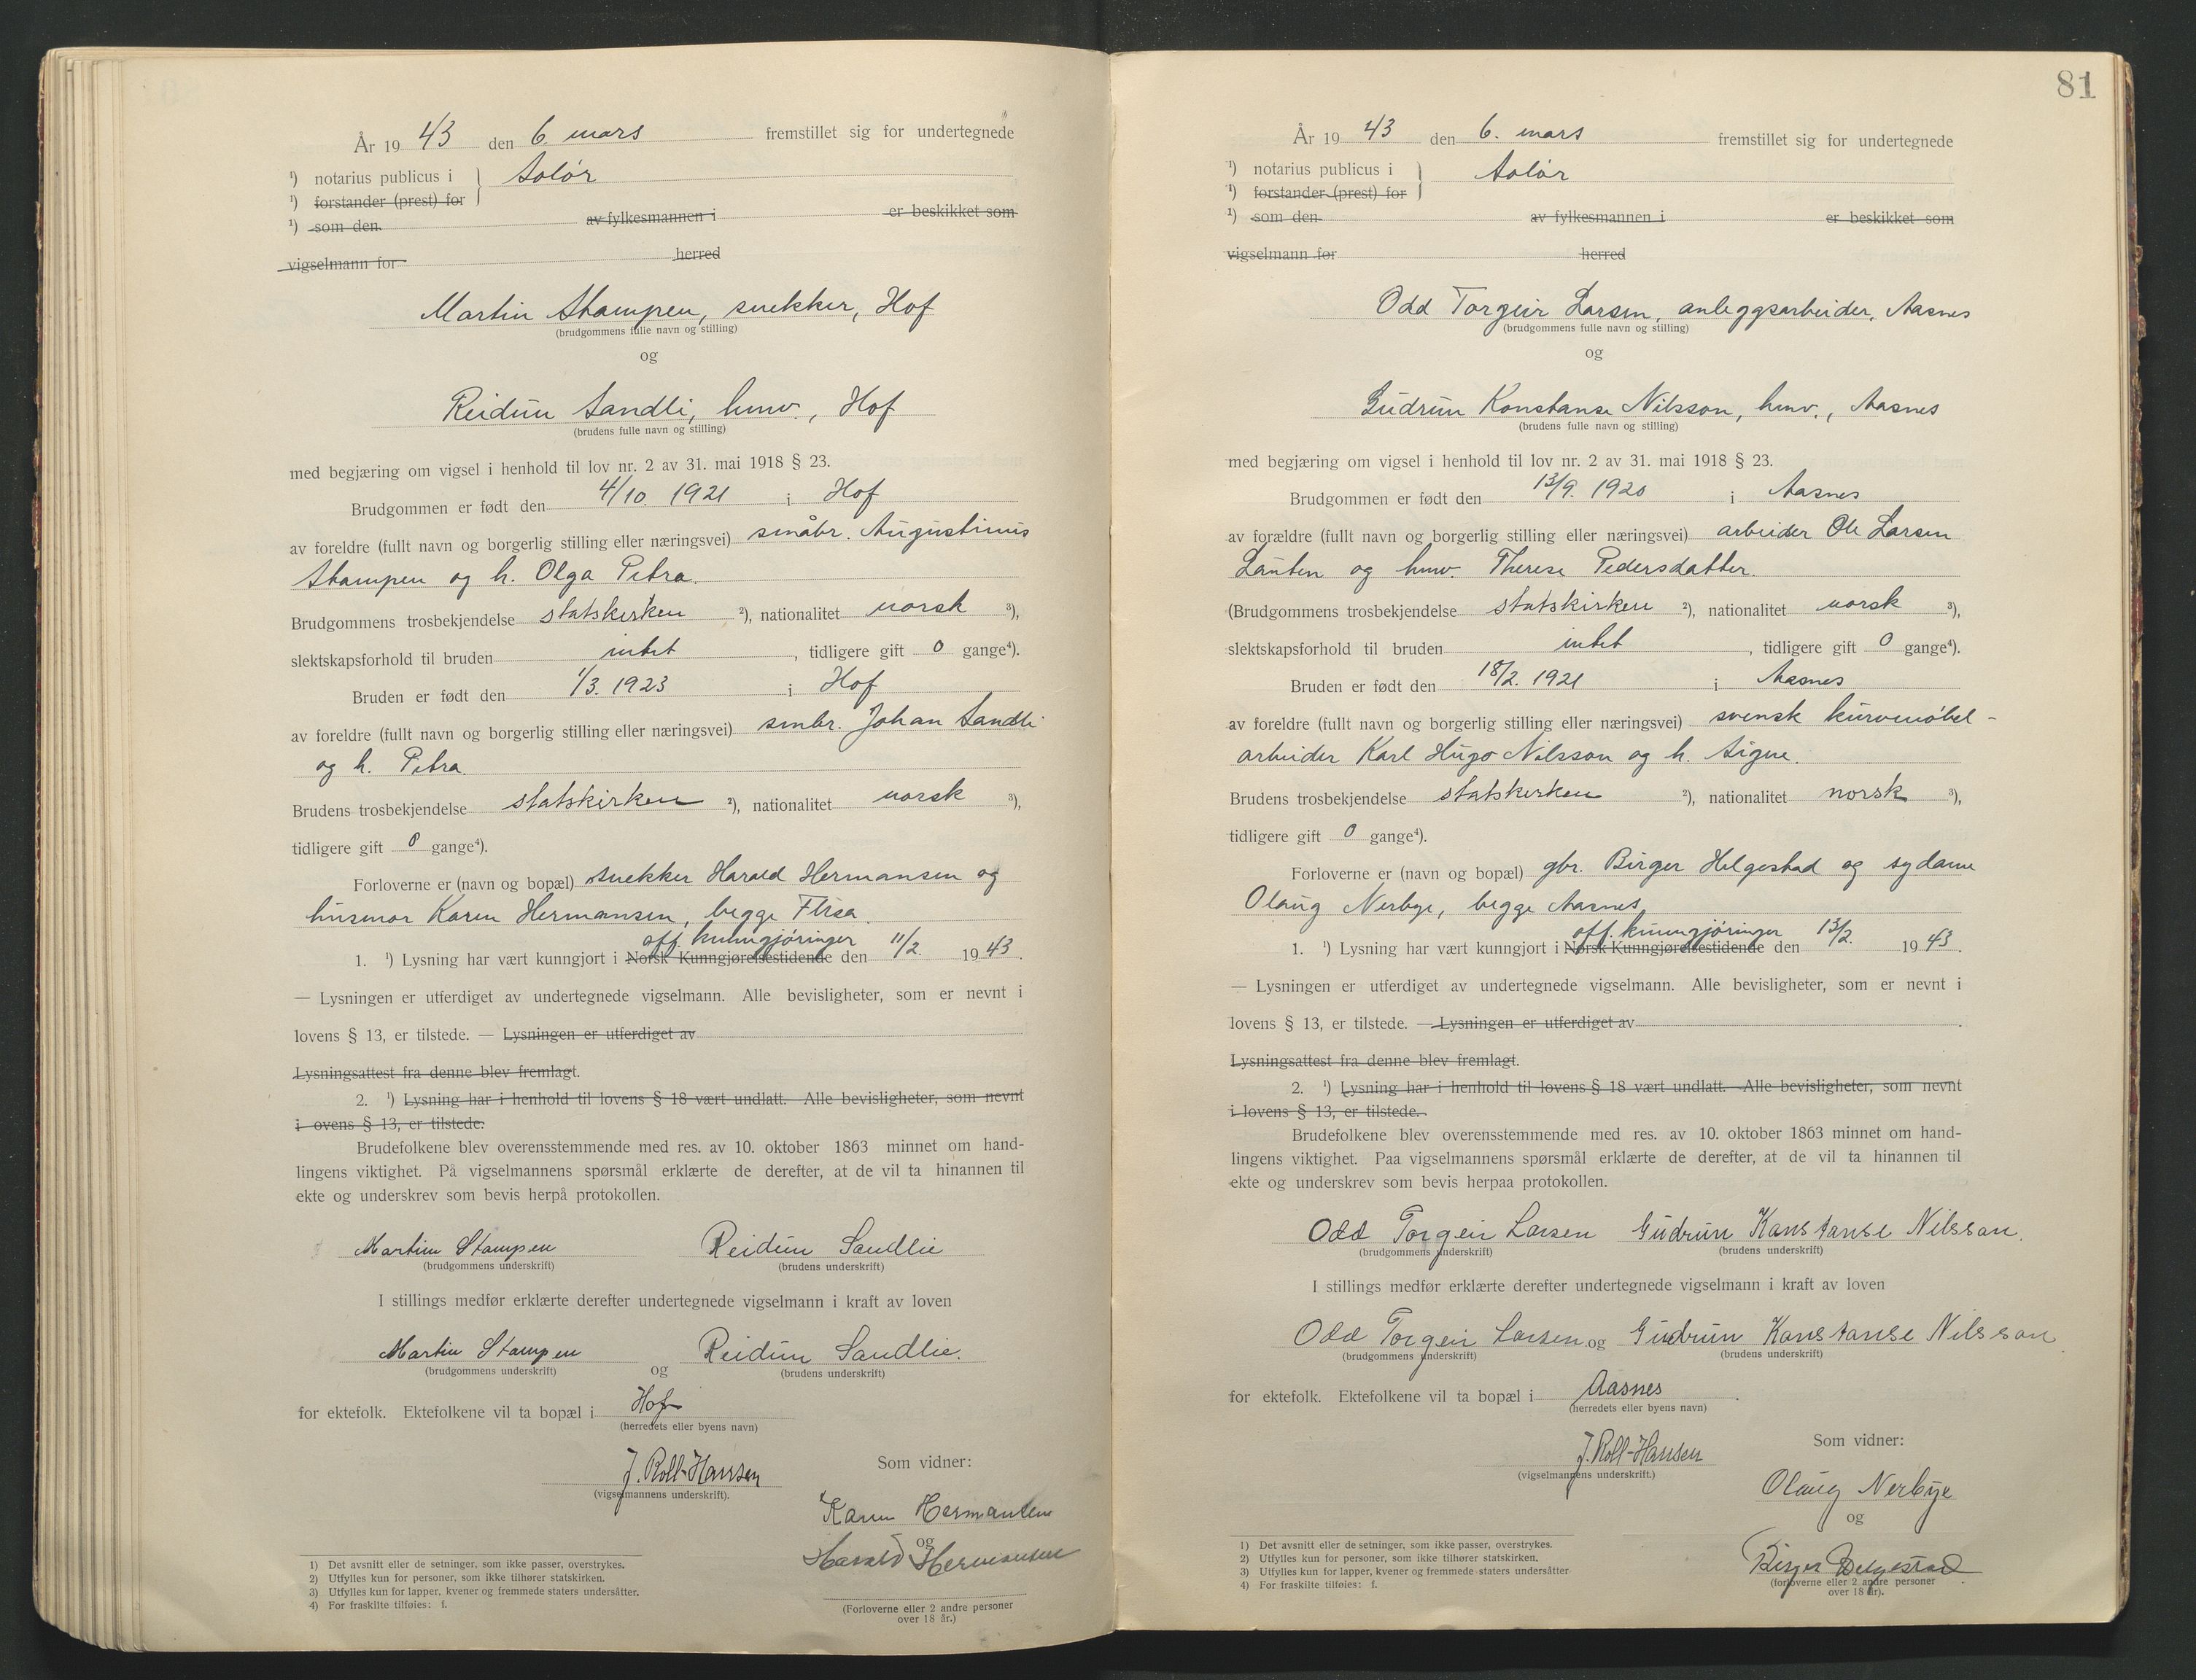 År 19 43 den 6. mars fremstillet sig for undertegnede
¹) notarius publicus i } Solør
¹) forstander (prest) for
¹) som den av fylkesmannen i er beskikket som
vigselmann for herred
Martin Stampen, snekker, Hof
(brudgommens fulle navn og stilling)
og
Reidun Sandli, hmv., Hof
(brudens fulle navn og stilling)
med begjæring om vigsel i henhold til lov nr. 2 av 31. mai 1918 § 23.
Brudgommen er født den 4/10. 1921 i Hof
av foreldre (fullt navn og borgerlig stilling eller næringsvei) småbr. Augustinus
Stampen og h. Olga Petra.
Brudgommens trosbekjendelse statskirken ²), nationalitet norsk ³),
slektskapsforhold til bruden intet, tidligere gift 0 gange⁴).
Bruden er født den 1/3. 1923 i Hof
av foreldre (fullt navn og borgerlig stilling eller næringsvei) smbr. Johan Sandli
og h. Petra.
Brudens trosbekjendelse statskirken ²), nationalitet norsk ³),
tidligere gift 0 gange⁴).
Forloverne er (navn og bopæl) snekker Harald Hermansen og
husmor Karen Hermansen, begge Flisa.
off. kunngjøringer
1. ¹) Lysning har vært kunngjort i Norsk Kunngjørelsestidende den 11/2. 19 43.
— Lysningen er utferdiget av undertegnede vigselmann. Alle bevisligheter, som er nevnt i
lovens § 13, er tilstede. — Lysningen er utferdiget av
Lysningsattest fra denne blev fremlagt.
2. ¹) Lysning har i henhold til lovens § 18 vært undlatt. Alle bevisligheter, som nevnt
i ovens § 13, er tilstede.
Brudefolkene blev overensstemmende med res. av 10. oktober 1863 minnet om hand-
lingens viktighet. På vigselmannens spørsmål erklærte de derefter, at de vil ta hinannen til
ekte og underskrev som bevis herpå protokollen.
Martin Stampen Reidun Sandlie
(brudgommens underskrift) (brudens underskrift)
I stillings medfør erklærte derefter undertegnede vigselmann i kraft av loven
Martin Stampen og Reidun Sandlie.
(brudgommens underskrift) (brudens underskrift)
for ektefolk. Ektefolkene vil ta bopæl i Hof
(herredets eller byens navn)
J. Roll-Hansen
(vigselmannens underskrift).
Som vidner:
Karen Hermansen
og
Harald Hermansen
(Forloverne eller 2 andre personer
over 18 år.)
1) Det avsnitt eller de setninger, som ikke passer, overstrykes.
2) Utfylles kun for personer, som ikke tilhører statskirken.
3) Utfylles kun for lapper, kvener og fremmede staters undersåtter.
4) For fraskilte tilføies: f.
81
År 19 43 den 6. mars fremstillet sig for undertegnede
¹) notarius publicus i } Solør
¹) forstander (prest) for
¹) som den av fylkesmannen i er beskikket som
vigselmann for herred
Odd Torgeir Larsen, anleggsarbeider, Aasnes
(brudgommens fulle navn og stilling)
og
Gudrun Konstanse Nilsson, hmv., Aasnes
(brudens fulle navn og stilling)
med begjæring om vigsel i henhold til lov nr. 2 av 31. mai 1918 § 23.
Brudgommen er født den 13/9. 1920 i Aasnes
av forældre (fullt navn og borgerlig stilling eller næringsvei) arbeider Ole Larsen
Lauten og hmv. Therese Pedersdatter.
(Brudgommens trosbekjendelse statskirken ²), nationalitet norsk ³),
slektskapsforhold til bruden intet, tidligere gift 0 gange⁴).
Bruden er født den 18/2. 1921 i Aasnes
av foreldre (fullt navn og borgerlig stilling eller næringsvei) svensk kurvmøbel-
arbeider Karl Hugo Nilsson og h. Signe.
Brudens trosbekjendelse statskirken ²), nationalitet norsk ³),
tidligere gift 0 gange⁴).
Forloverne er (navn og bopæl) gbr. Birger Helgestad og sydame
Olaug Nerbye, begge Aasnes.
off. kunngjøringer
1. ¹) Lysning har vært kunngjort i Norsk Kunngjørelsestidende den 13/2. 19 43.
— Lysningen er utferdiget av undertegnede vigselmann. Alle bevisligheter, som er nevnt i
lovens § 13, er tilstede. — Lysningen er utferdiget av
Lysningsattest fra denne blev fremlagt.
2. ¹) Lysning har i henhold til lovens § 18 vært undlatt. Alle bevisligheter, som nevnt
i lovens § 13, er tilstede.
Brudefolkene blev overensstemmende med res. av 10. oktober 1863 minnet om hand-
lingens viktighet. Paa vigselmannens spørsmål erklærte de derefter, at de vil ta hinannen til
ekte og underskrev som bevis herpaa protokollen.
Odd Torgeir Larsen Gudrun Konstanse Nilsson.
(brudgommens underskrift) (brudens underskrift)
I stillings medfør erklærte derefter undertegnede vigselmann i kraft av loven
Odd Torgeir Larsen og Gudrun Konstanse Nilsson
(brudgommens underskrift) (brudens underskrift)
for ektefolk. Ektefolkene vil ta bopæl i Aasnes.
(herredets eller byens navn)
J. Roll-Hansen
(vigselmannens underskrift.)
Som vidner:
Olaug Nerbye
og
Birger Helgestad
(forloverne eller 2 andre personer
over 18 år).
1) Det avsnitt eller de setninger, som ikke passer, overstrykes.
2) Utfylles kun for personer, som ikke tilhører statskirken.
3) Utfylles kun for lapper, kvener og fremmede staters undersåtter
4) For fraskilte tilføies: f.